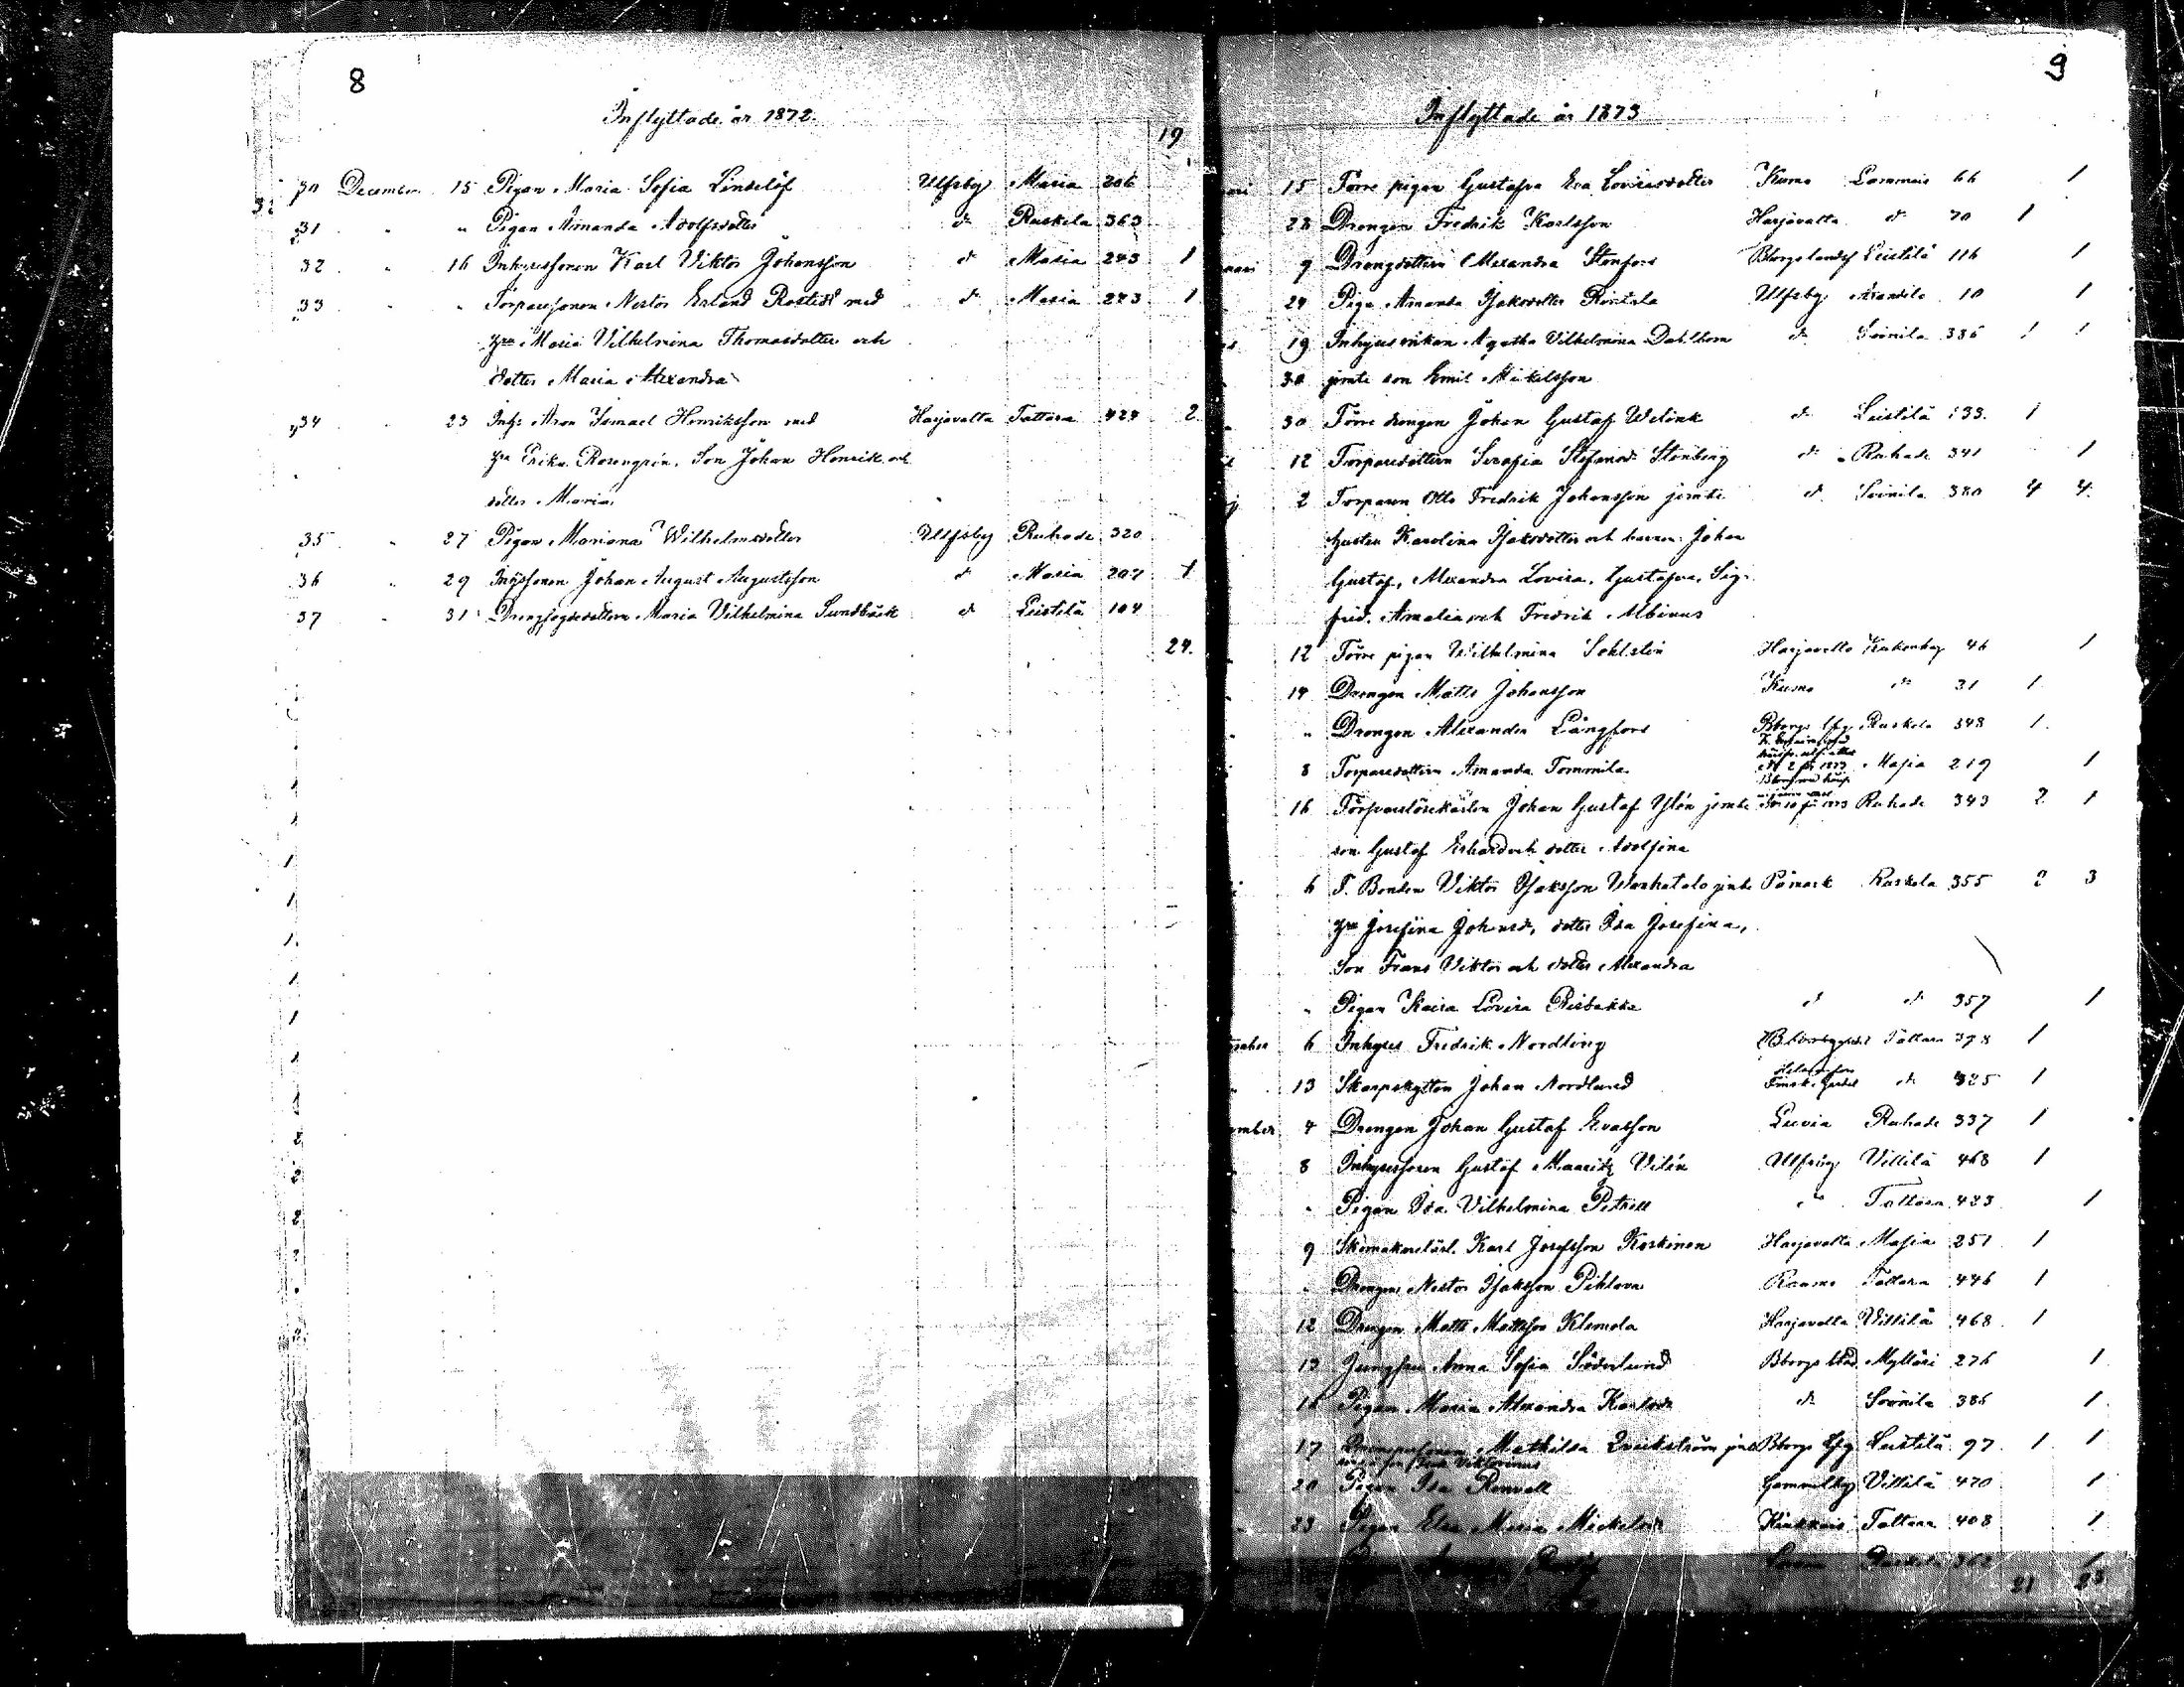 8
Inflyttade år 1872.
19
30 December 15 Pigan Maria Sofia Lindelöf Ulfsby Masia 206
31 " " Pigan Amanda Adolfsdotter d:o Ruskela 363
32 " 16 Inhysessonen Karl Viktor Johansson d:o Masia 243 1
33 " " Torparesonen Nestor Erland Rostedt med d:o Masia 273 1
hru Maria Vilhelmina Thomasdotter och
dotter Maria Alexandra
34 " 23 Inhys Aron Ismael Henriksson med Harjavalta Tattara 423 2
hru Erika Rosengrén, Son Johan Henrik och
dotter Maria
35 " 27 Pigan Mariana Wilhelmsdotter Ulfsby Ruhade 320
36 " 29 Inhyssonen Johan August Augustsson d:o Masia 207 1
37 " 31 Drengfogdedottern Maria Vilhelmina Sundbäck d:o Leistilä 104
24.
9
Inflyttade år 1873
15 Förre pigan Gustafva Eva Lovisasdotter Kumo Lammais 66 1
28 Drengen Fredrik Karlsson Harjavalta d:o 70 1
9 Drengdottern Alexandra Stenfors Bborgs landsf Leistilä 116 1
24 Piga Amanda Isaksdotter Rintala Ulfsby Arandila 10 1
19 Inhysesenkan Agatha Vilhelmina Dahlbom d:o Soinila 386 1 1
30 jemte son Emil Mikelsson
30 Förre drengen Johan Gustaf Welink d:o Leistilä 133 1
12 Torparedottern Serafia Stefansd. Stenberg d:o Ruhade 341 1
2 Torparen Otto Fredrik Johansson jemte d:o Soinila 380 4 4
hustru Karolina Isaksdotter och barnen: Johan
Gustaf, Alexandra Lovisa, Gustafva, Sig-
frid, Amalia och Fredrik Albinus
12 Förre pigan Wilhelmina Sohlstén Harjavalta 46 1
14 Drengen Matts Johansson Kumo d:o 31 1
" Drengen Alexander Långfors Bborgs lfg Ruskela 348 1
8 Torparedottern Amanda Tommila Masia 219 1
16 Johan Gustaf Ylén jemte Ruhade 343 2 1
son Gustaf Erhard och dotter Adolfina
6 F. Bonden Viktor Isaksson Wanhatalo jemte Påmark Ruskela 355 2 3
hru Josefina Johansd., dotter Ida Josefina,
Son Frans Viktor och dotter Alexandra
" Pigan Kaisa Lovisa d:o d:o 357 1
6 Inhyses Fredrik Nordling Tattara 398 1
13 Skarpskytten Johan Nordlund Finska Gardet d:o 425 1
4 Drengen Johan Gustaf Evasson Luvia Ruhade 337 1
8 Inhysessonen Gustaf Mauritz Vilén Ulfsby Villilä 468 1
" Pigan Ida Vilhelmina Petrell d:o Tattara 423 1
9 Skomakarelärl. Karl Josefsson Koskinen Harjavalta Masia 251 1
" Drengen Nestor Isaksson Pihlava Raumo Tattara 446 1
12 Drengen Matts Mattsson Klemola Harjavalta Villilä 468 1
13 Jungfru Anna Sofia Söderlund Bborgs stad Mylläri 276 1
16 Pigan Maria Alexandra Karlsdr d:o Soinila 386 1
17 Mathilda jemte Bborgs lfg Leistilä 97 1 1
20 Pigan Ida Renvall Gammelby Villilä 470 1
23 Pigan Elsa Maria Mickelsdr Kiukais Tattara 408 1
1
21 23